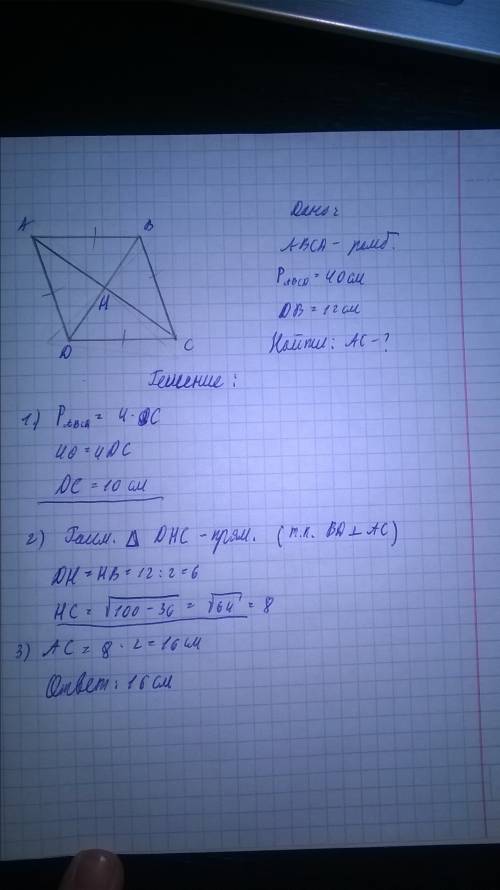 A B
H
D C
Дано:
ABCD - ромб.
P_ABCD = 40 см
DB = 12 см
Найти: AC - ?
Решение:
1) P_ABCD = 4 · DC
40 = 4DC
DC = 10 см
2) Рассм. Δ DHC - прям. (т.к. BD ⊥ AC)
DH = HB = 12 : 2 = 6
HC = √100 - 36 = √64 = 8
3) AC = 8 · 2 = 16 см
Ответ: 16 см